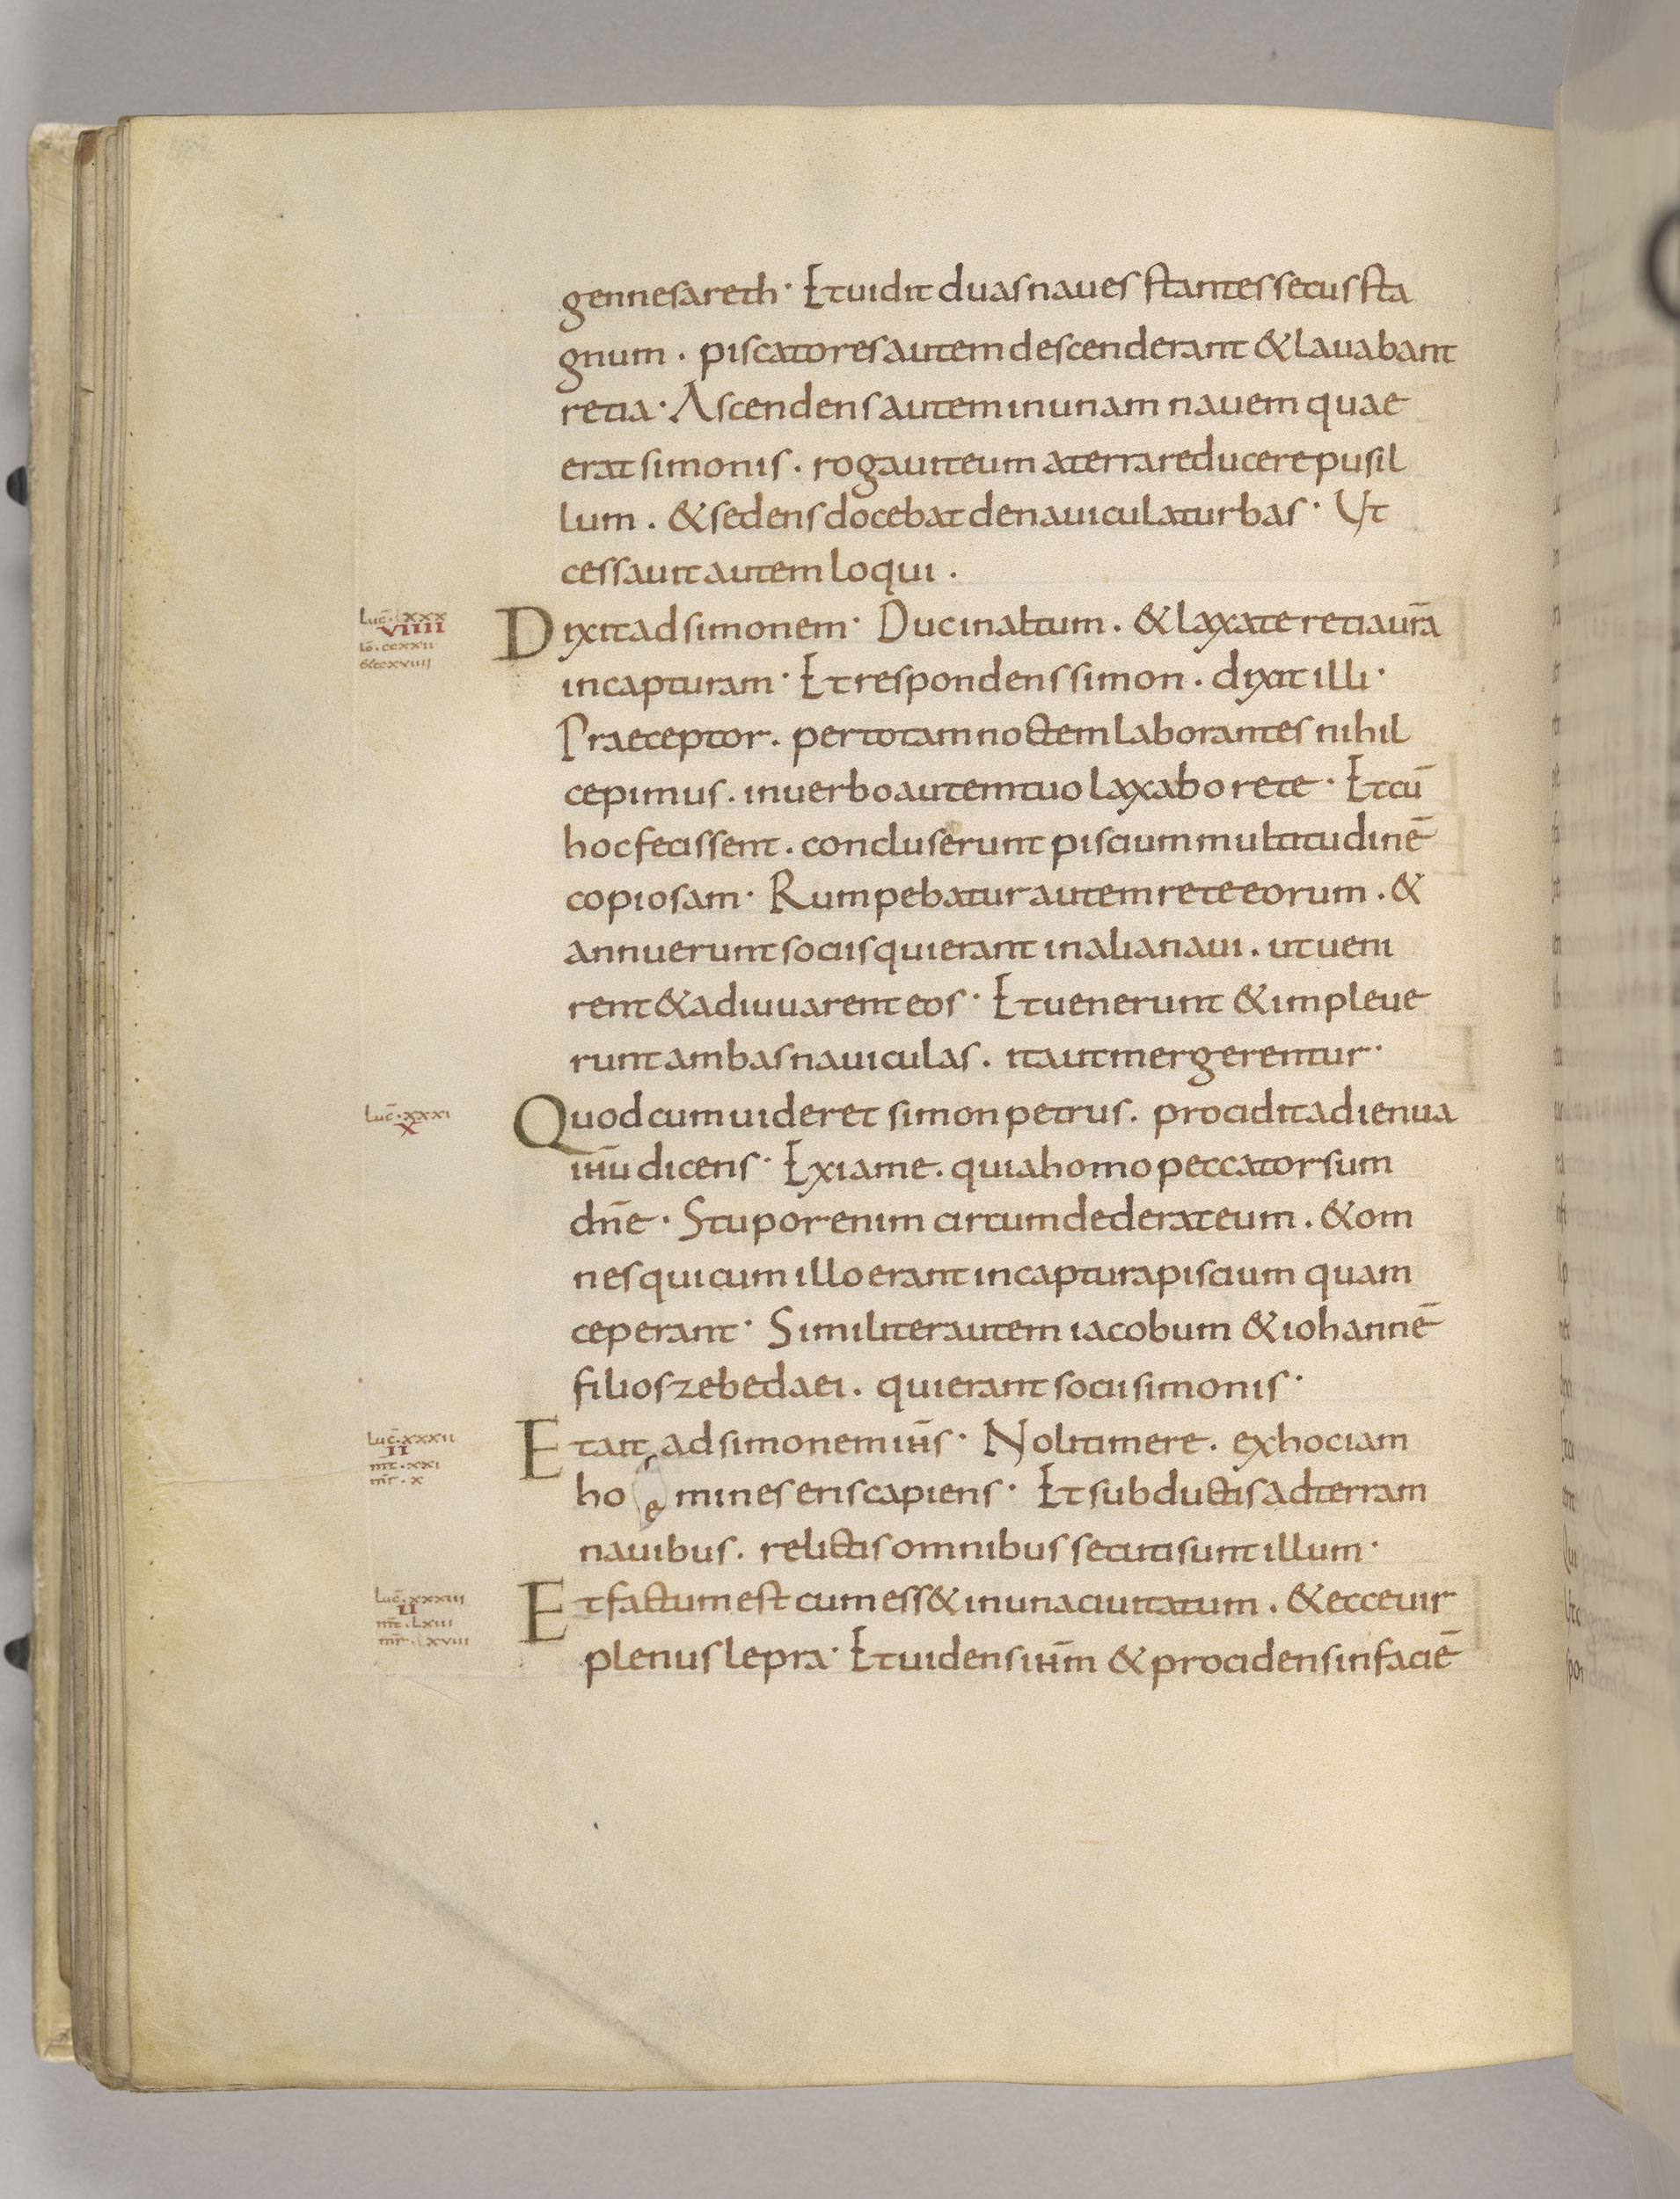 gennesareth · Et uidit duas naues stantes secus sta
gnum . piscatores autem descenderant & lauabant
retia · Ascendens autem in unam nauem quae
erat simonis . rogauit eum a terra reducere pusil
lum . & sedens docebat de nauicula turbas · Ut
cessauit autem loqui .
Luc̄ . xxx
VIIII
Iō . ccxxii
Dixit ad simonem · Duc in altum . & laxate retia ur̄a
in capturam · Et respondens simon . dixit illi ·
Praeceptor . per totam noctem laborantes nihil
cepimus . in uerbo autem tuo laxabo rete · Et cū
hoc fecissent . concluserunt piscium multitudinē
copiosam · Rumpebatur autem rete eorum . &
annuerunt sociis qui erant in alia naui . ut ueni
rent & adiuuarent eos · Et uenerunt & impleue
runt ambas nauiculas . ita ut mergerentur ·
Luc̄ . xxxi
X
Quod cum uideret simon petrus . procidit ad ienua
ih̄u dicens · Exi a me . quia homo peccator sum
dn̄e · Stupor enim circumdederat eum . & om
nes qui cum illo erant in captura piscium quam
ceperant · Similiter autem iacobum & iohannē
filios zebedaei . qui erant socii simonis ·
Luc̄ . xxxii
II
mt̄ . xxi
mr̄ . x
Et ait ad simonem ih̄s · Noli timere . ex hoc iam
homines eris capiens · Et subductis ad terram
nauibus . relictis omnibus secuti sunt illum ·
Luc̄ . xxxiii
II
mt̄ . Lxiii
mr̄ . xviii
Et factum est cum ess& in una ciuitatum . & ecce uir
plenus lepra · Et uidens ih̄m & procidens in faciē